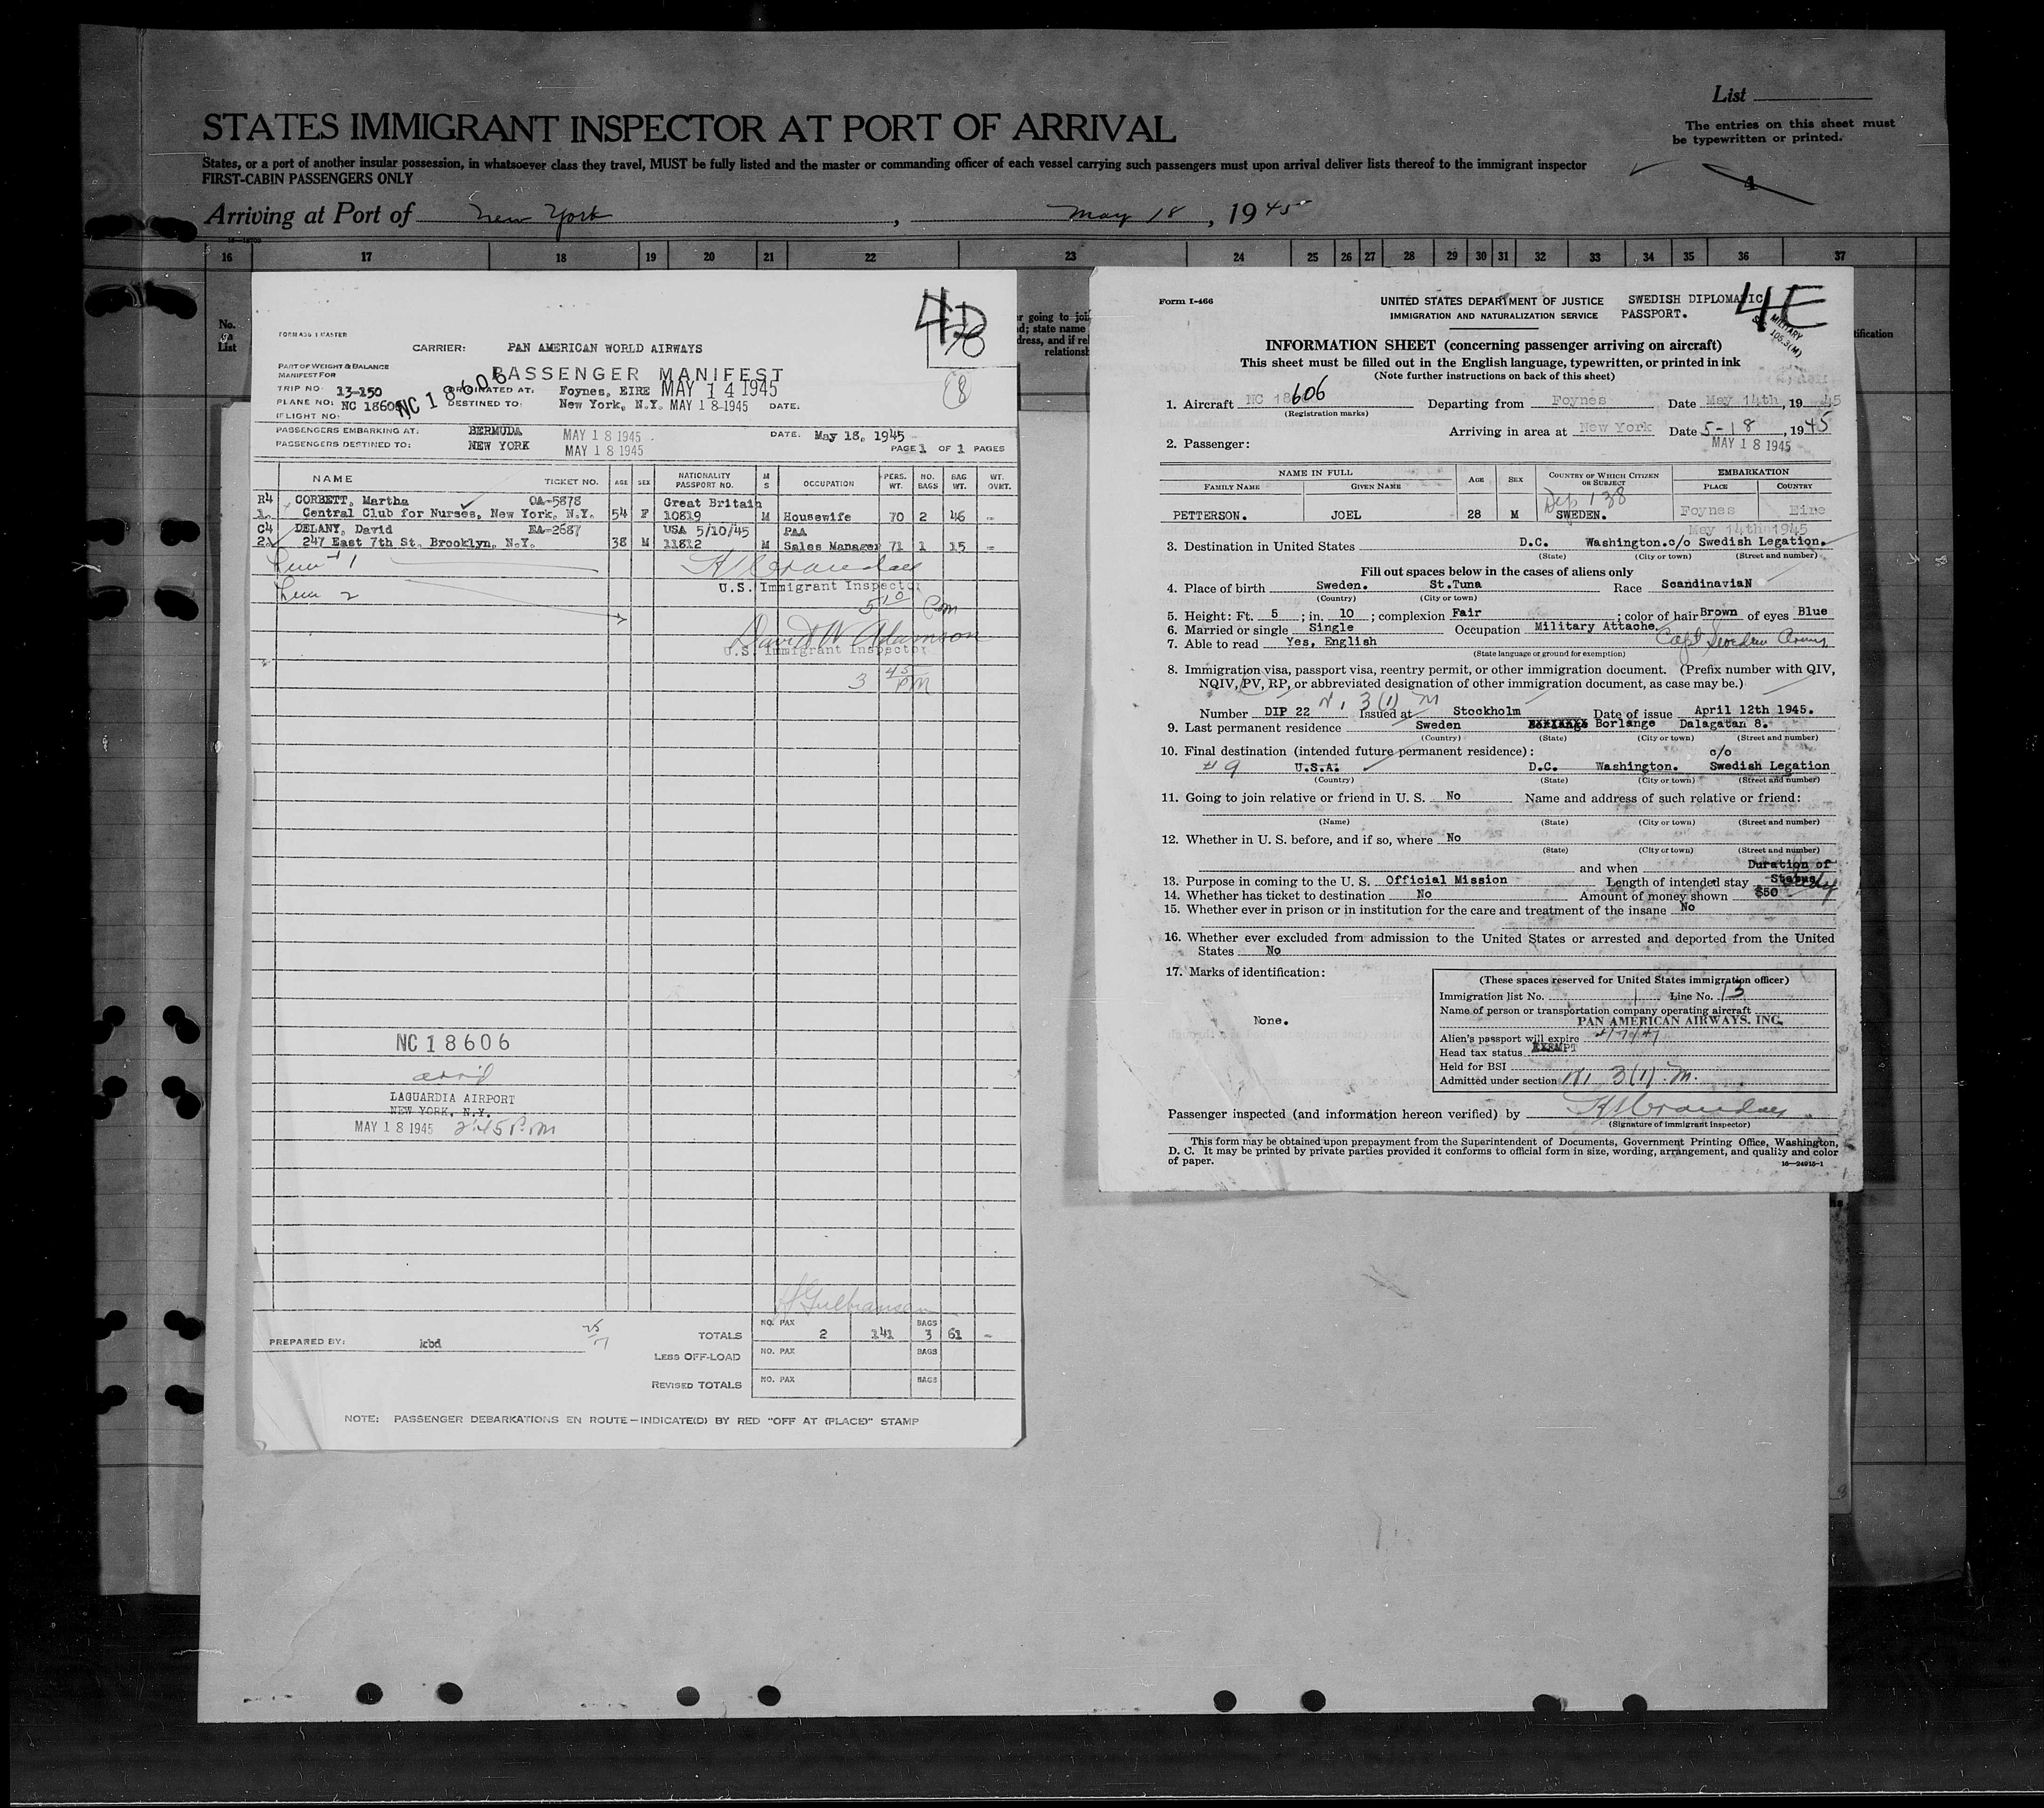 List
STATES IMMIGRANT INSPECTOR AT PORT OF ARRIVAL
The entries on this sheet must
be typewritten or printed.
States, or a port of another insular possession, in whatsoever class they travel, MUST be fully listed and the master or commanding officer of each vessel carrying such passengers must upon arrival deliver lists thereof to the immigrant inspector
FIRST-CABIN PASSENGERS ONLY
4
Arriving at Port of New York, May 18, 1945
16 17 18 19 20 21 22 23 24 25 26 27 28 29 30 31 32 33 34 35 36 37
No.
on
List
4D
70
8
FORM ABB 1 MASTER
CARRIER: PAN AMERICAN WORLD AIRWAYS
PART OF WEIGHT & BALANCE
MANIFEST FOR
PASSENGER MANIFEST
TRIP NO. 13-150 ORIGINATED AT: Foynes, EIRE MAY 14 1945
PLANE NO: NC 18606 NC18606 DESTINED TO: New York, N.Y. MAY 18 1945 DATE:
FLIGHT NO:
PASSENGERS EMBARKING AT: BERMUDA MAY 18 1945 DATE: May 18, 1945
PASSENGERS DESTINED TO: NEW YORK MAY 18 1945 PAGE 1 OF 1 PAGES
NAME TICKET NO. AGE SEX NATIONALITY PASSPORT NO. M S OCCUPATION PERS. WT. NO. BAGS BAG WT. WT. OVMT.
R4 CORBETT, Martha OA-5878 Great Britain
1. Central Club for Nurses, New York, N.Y. 54 F 10819 M Housewife 70 2 46 -
C4 DELANY, David EA-2687 USA 5/10/45 PAA
2. 247 East 7th St. Brooklyn, N.Y. 38 M 11812 M Sales Manager 71 1 15 -
Line 1
U.S. Immigrant Inspector
Line 2
5 10 PM
David W Adamson
U.S. Immigrant Inspector
3 45 PM
NC18606
arrid
LAGUARDIA AIRPORT
NEW YORK, N.Y.
MAY 18 1945 2:45 P.M
H Gulbransen
PREPARED BY: kbd
TOTALS NO. PAX 2 141 BAGS 3 61 -
LESS OFF-LOAD NO. PAX BAGS
REVISED TOTALS NO. PAX BAGS
NOTE: PASSENGER DEBARKATIONS EN ROUTE—INDICATE(D) BY RED "OFF AT (PLACE)" STAMP
Form I-466
UNITED STATES DEPARTMENT OF JUSTICE SWEDISH DIPLOMATIC
IMMIGRATION AND NATURALIZATION SERVICE PASSPORT.
4E
MILITARY
SEC. 105.3(M)
INFORMATION SHEET (concerning passenger arriving on aircraft)
This sheet must be filled out in the English language, typewritten, or printed in ink
(Note further instructions on back of this sheet)
1. Aircraft NC 18606 Departing from Foynes Date May 14th, 1945
(Registration marks)
Arriving in area at New York Date 5-18, 1945
2. Passenger: MAY 18 1945
NAME IN FULL AGE SEX COUNTRY OF WHICH CITIZEN OR SUBJECT EMBARKATION
FAMILY NAME GIVEN NAME PLACE COUNTRY
Dep 138
PETTERSON. JOEL 28 M SWEDEN. Foynes Eire
May 14th 1945
3. Destination in United States D.C. Washington.c/o Swedish Legation.
(State) (City or town) (Street and number)
Fill out spaces below in the cases of aliens only
4. Place of birth Sweden. St.Tuna Race ScandinaviaN
(Country) (City or town)
5. Height: Ft. 5; in. 10; complexion Fair; color of hair Brown of eyes Blue
6. Married or single Single Occupation Military Attache.
7. Able to read Yes, English Capt Sweden Army
(State language or ground for exemption)
8. Immigration visa, passport visa, reentry permit, or other immigration document. (Prefix number with QIV,
NQIV, PV, RP, or abbreviated designation of other immigration document, as case may be.)
3(1) M
Number DIP 22 Issued at Stockholm Date of issue April 12th 1945.
9. Last permanent residence Sweden Borlange Dalagatan 8.
(Country) (State) (City or town) (Street and number)
10. Final destination (intended future permanent residence): c/o
#9 U.S.A. D.C. Washington. Swedish Legation
(Country) (State) (City or town) (Street and number)
11. Going to join relative or friend in U. S. No Name and address of such relative or friend:
(Name) (State) (City or town) (Street and number)
12. Whether in U. S. before, and if so, where No
(State) (City or town) (Street and number)
and when Duration of
13. Purpose in coming to the U. S. Official Mission Length of intended stay Status
14. Whether has ticket to destination No Amount of money shown $50
15. Whether ever in prison or in institution for the care and treatment of the insane No
16. Whether ever excluded from admission to the United States or arrested and deported from the United
States No
17. Marks of identification:
None.
(These spaces reserved for United States immigration officer)
Immigration list No. 1 Line No. 13
Name of person or transportation company operating aircraft
PAN AMERICAN AIRWAYS. INC.
Alien's passport will expire 4/7/47
Head tax status EXEMPT
Held for BSI
Admitted under section 3(1). M.
Passenger inspected (and information hereon verified) by
(Signature of immigrant inspector)
This form may be obtained upon prepayment from the Superintendent of Documents, Government Printing Office, Washington,
D. C. It may be printed by private parties provided it conforms to official form in size, wording, arrangement, and quality and color
of paper.
16—24915-1